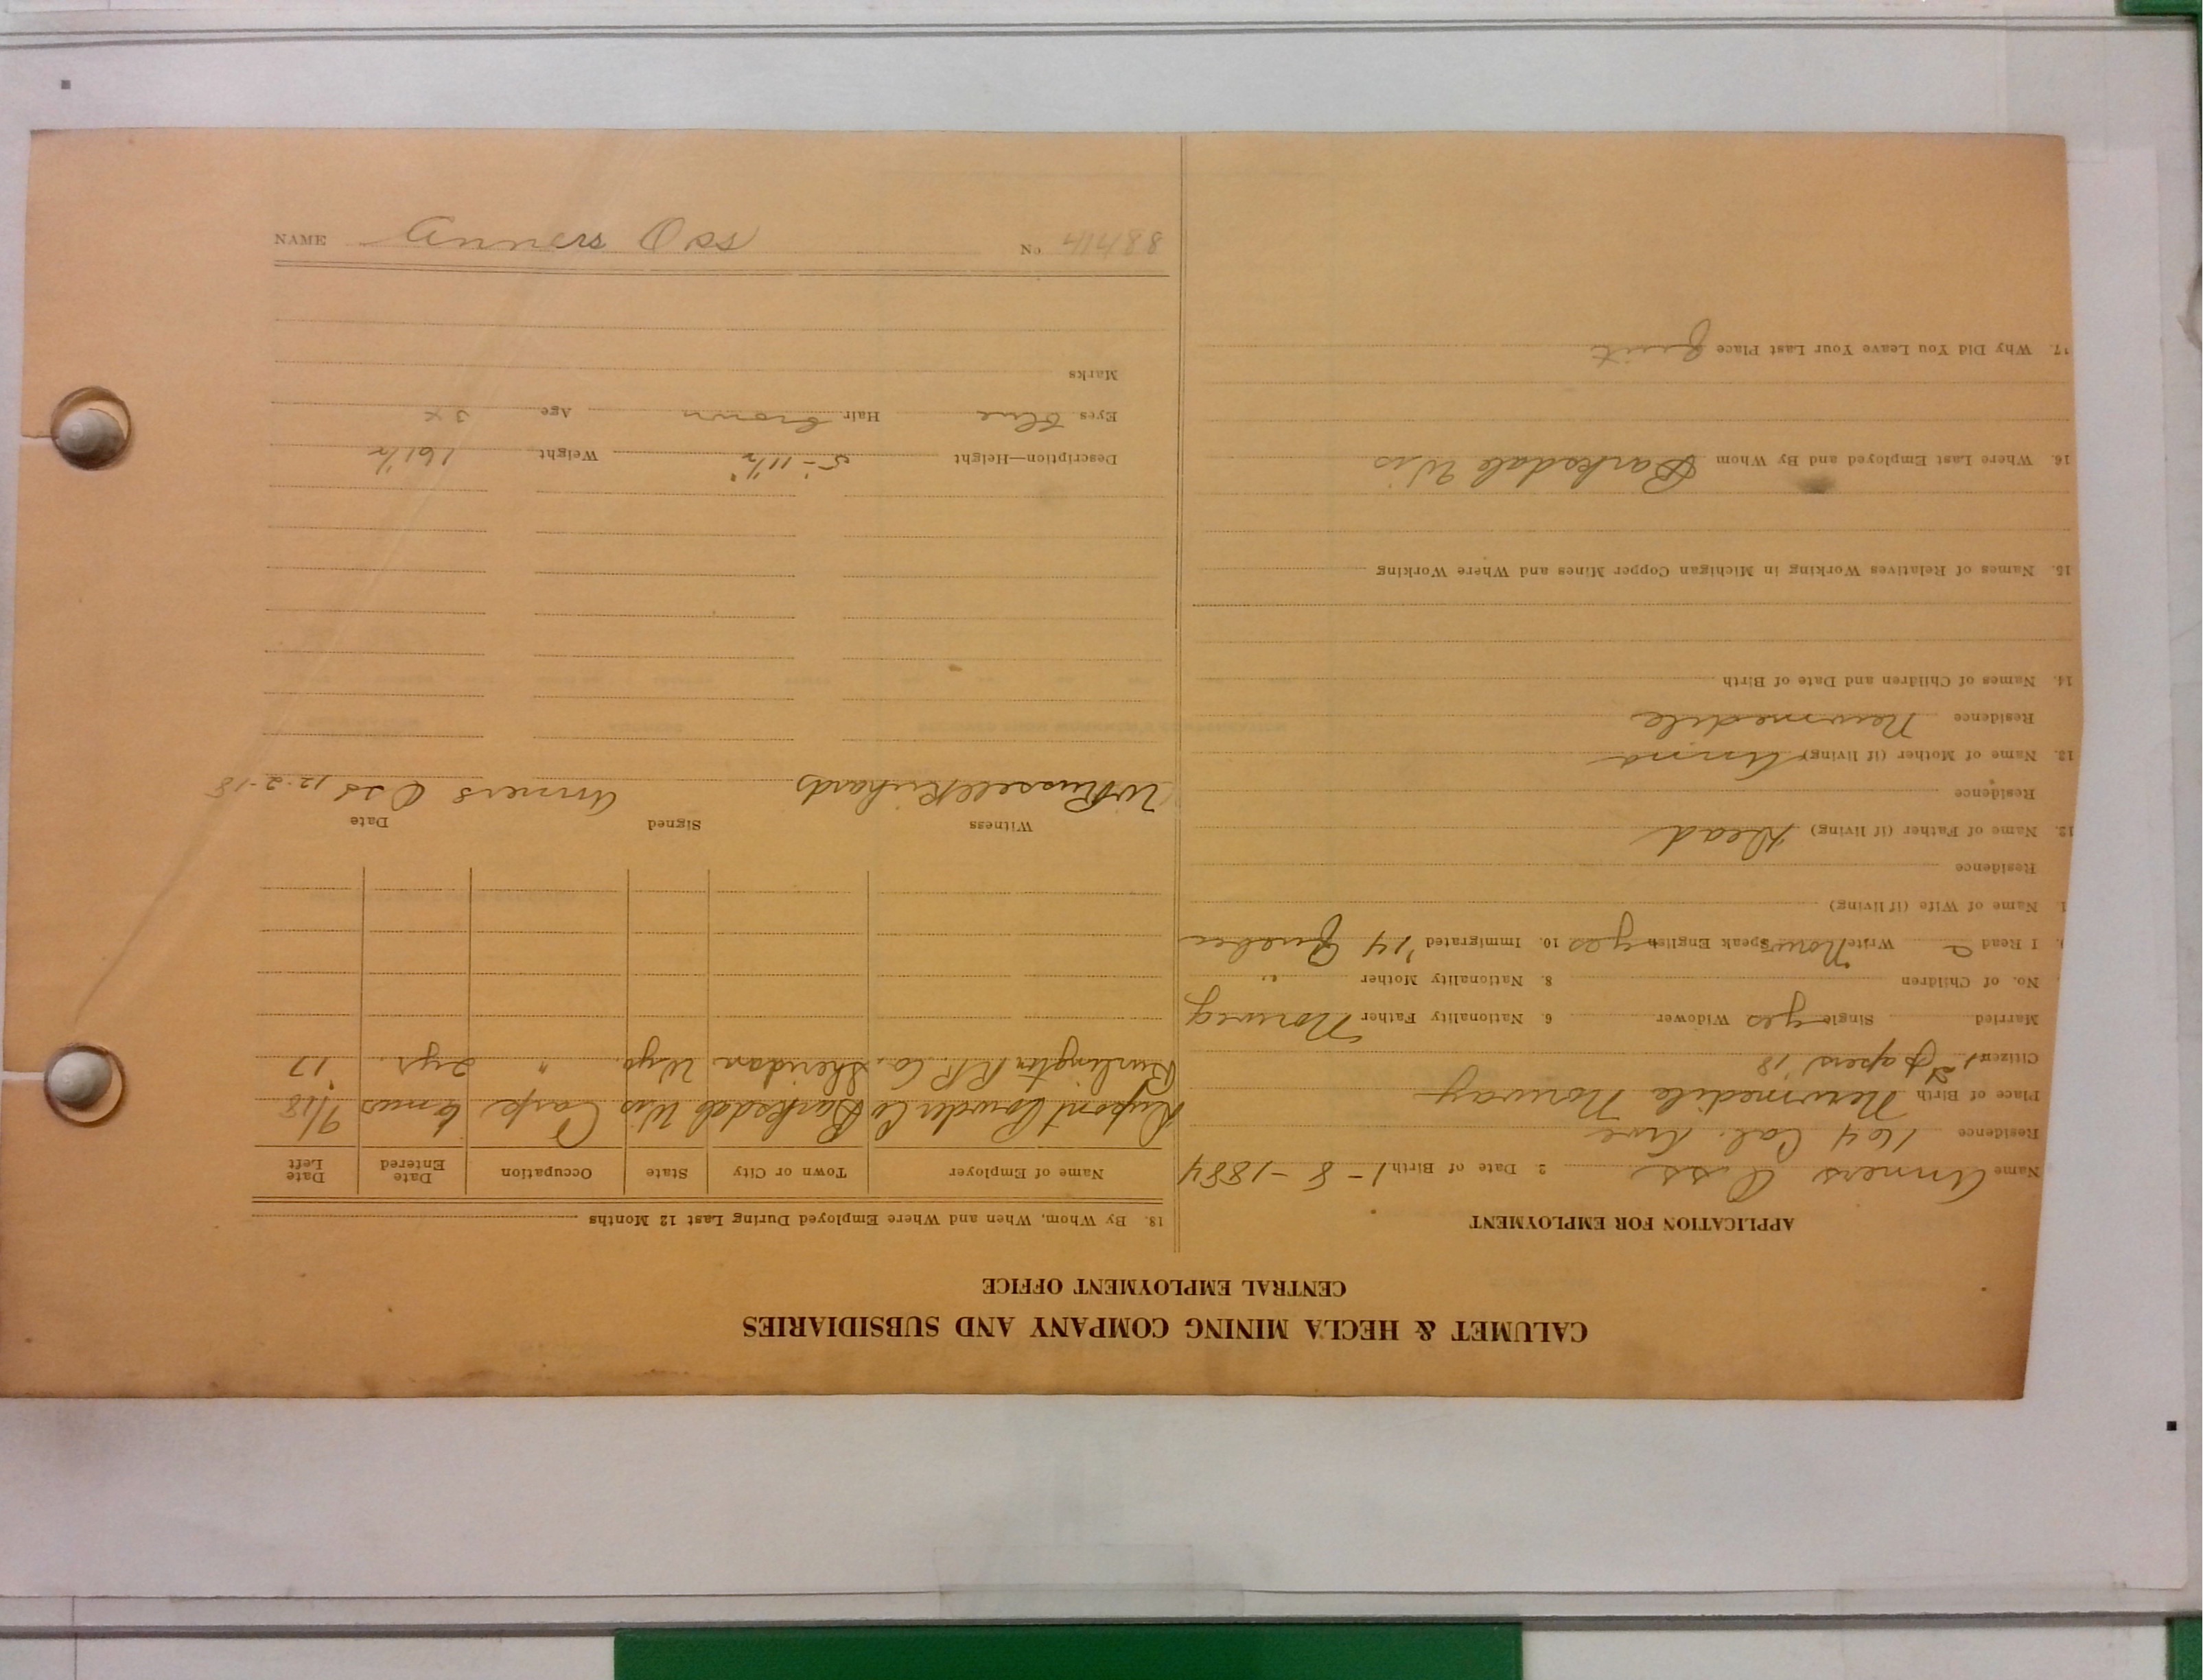 CALUMET & HECLA MINING COMPANY AND SUBSIDIARIES
CENTRAL EMPLOYMENT OFFICE
APPLICATION FOR EMPLOYMENT
Name Anners Oss 2. Date of Birth 1-8-1884
Residence 164 Cal. Ave
Place of Birth Newmedile Norway
Citizen 1st papers '18
Married Single yes Widower 6. Nationality Father Norweg
No. of Children 8. Nationality Mother "
I Read Write Norw. Speak English yes 10. Immigrated '14 Quebec
1. Name of Wife (if living)
Residence
12. Name of Father (if living) Dead
Residence
13. Name of Mother (if living) Anna
Residence Newmedile
14. Names of Children and Date of Birth
15. Names of Relatives Working in Michigan Copper Mines and Where Working
16. Where Last Employed and By Whom Barksdale Wis
17. Why Did You Leave Your Last Place Quit
18. By Whom, When and Where Employed During Last 12 Months
Name of Employer Town or City State Occupation Date Entered Date Left
Dupont Powder Co Barksdale Wis Carp 6 mos 9/18
Burlington R.R. Co. Sheridan Wyo. " 2 yrs. '17
Witness Signed Date
W Russell Richards Anners Oss 12-2-18
Description—Height 5'-11 1/2" Weight 161 1/2
Eyes blue Hair brown Age 34
Marks
NAME Anners Oss No.